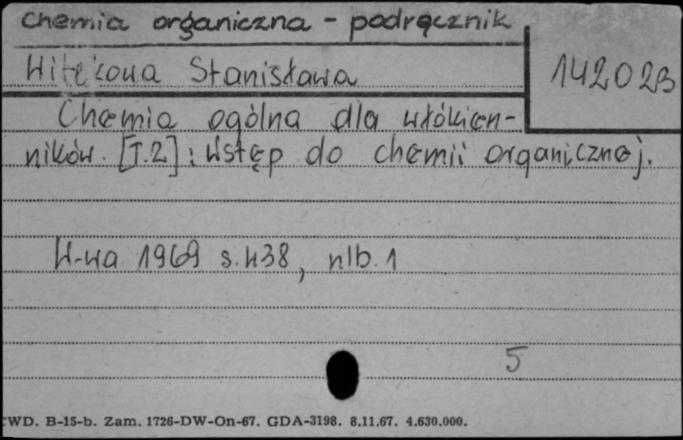 Chemia organiczna - podręcznik
Witekowa Stanisława
142023
Chemia ogólna dla włókien-
ników. [T.2]: Wstęp do chemii organicznej.
W-wa 1969 s. 438, nlb. 1
5
WD. B-15-b. Zam. 1726-DW-On-67. GDA-3198. 8.11.67. 4.630.000.